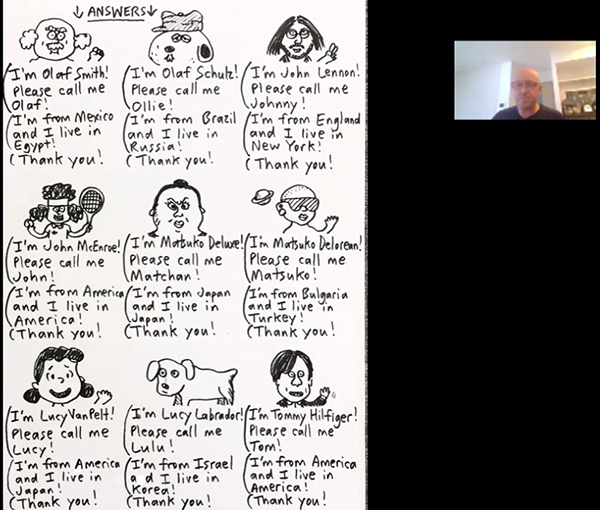 ↓ ANSWERS ↓
I'm Olaf Smith!
Please call me
Olaf!
I'm from Mexico
and I live in
Egypt!
(Thank you!
I'm Olaf Schulz!
Please call me
Ollie!
I'm from Brazil
and I live in
Russia!
(Thank you!
I'm John Lennon!
Please call me
Johnny!
I'm from England
and I live in
New York!
(Thank you!
I'm John McEnroe!
Please call me
John!
I'm from America
and I live in
America!
(Thank you!
I'm Matsuko Deluxe!
Please call me
Matchan!
I'm from Japan
and I live in
Japan!
(Thank you!
I'm Matsuko Delorean!
Please call me
Matsuko!
I'm from Bulgaria
and I live in
Turkey!
(Thank you!
I'm Lucy Van Pelt!
Please call me
Lucy!
I'm from America
and I live in
Japan!
(Thank you!
I'm Lucy Labrador!
Please call me
Lulu!
I'm from Israel
a d I live in
Korea!
(Thank you!
I'm Tommy Hilfiger!
Please call me
Tom!
I'm from America
and I live in
America!
(Thank you!